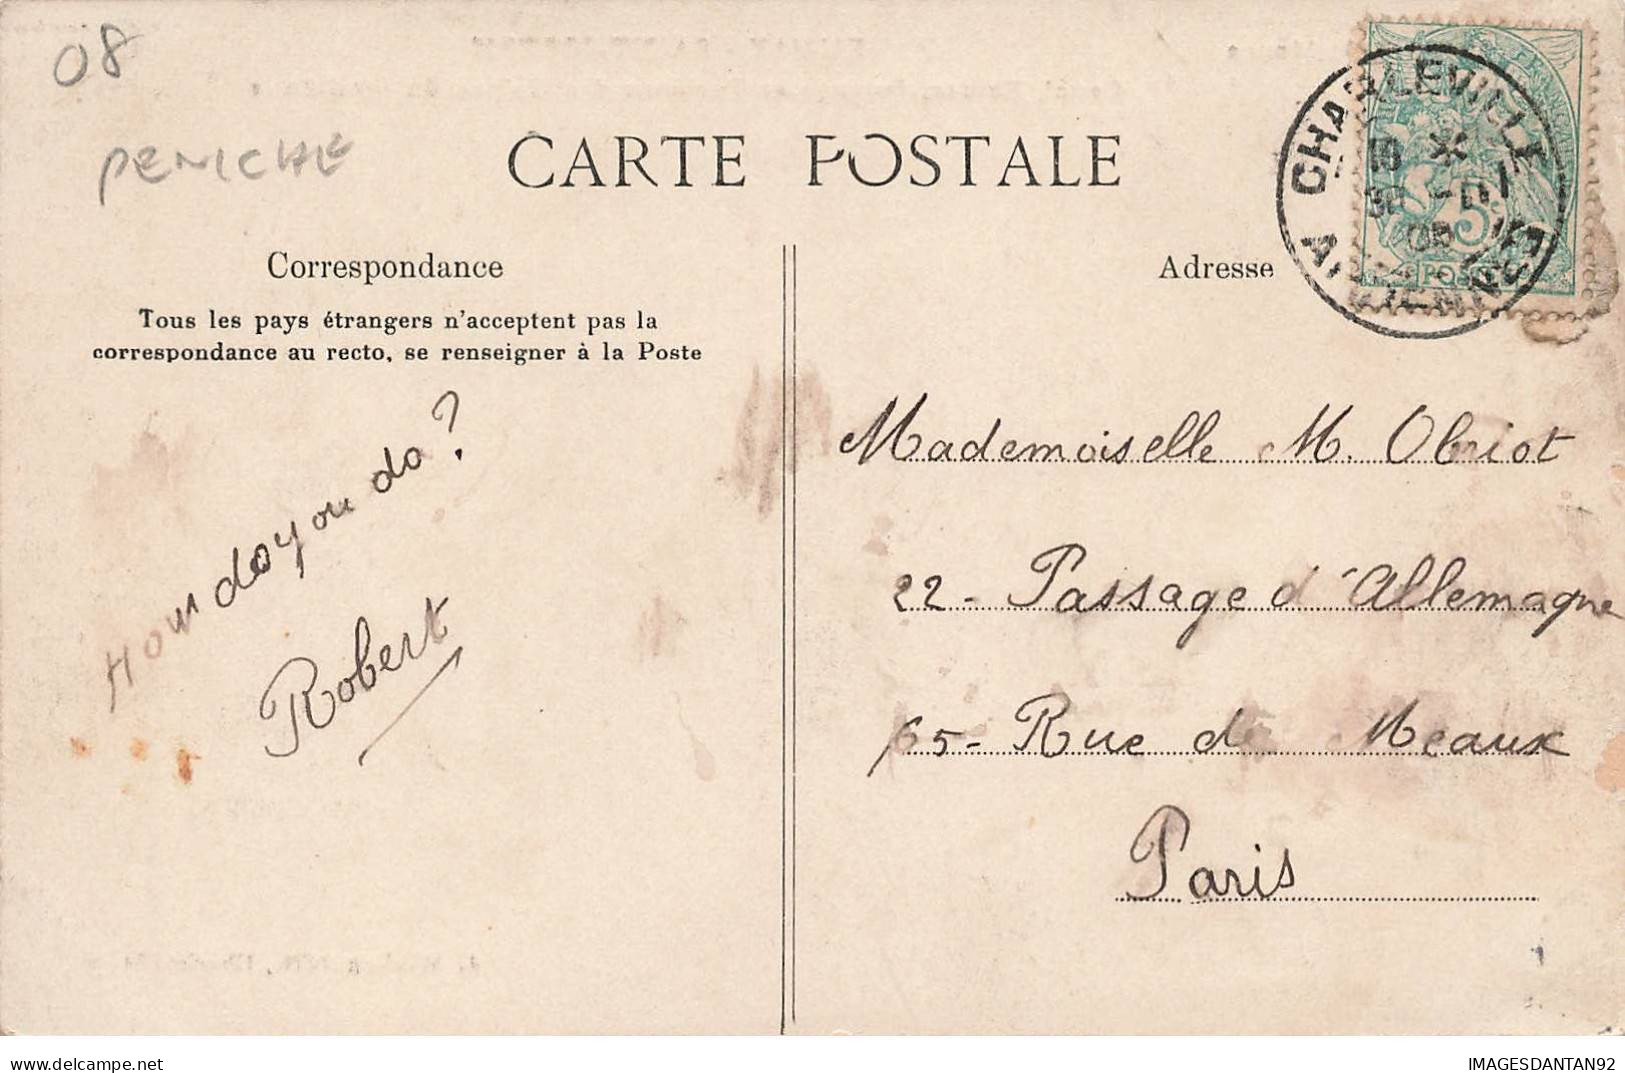 08
PENICHE
CARTE POSTALE
Correspondance
Tous les pays étrangers n'acceptent pas la
correspondance au recto, se renseigner à la Poste
How do you do?
Robert
Adresse
CHARLEVILLE
5
Mademoiselle M. Obriot
22 - Passage d'Allemagne
65 - Rue de Meaux
Paris
IMAGESDANTAN92